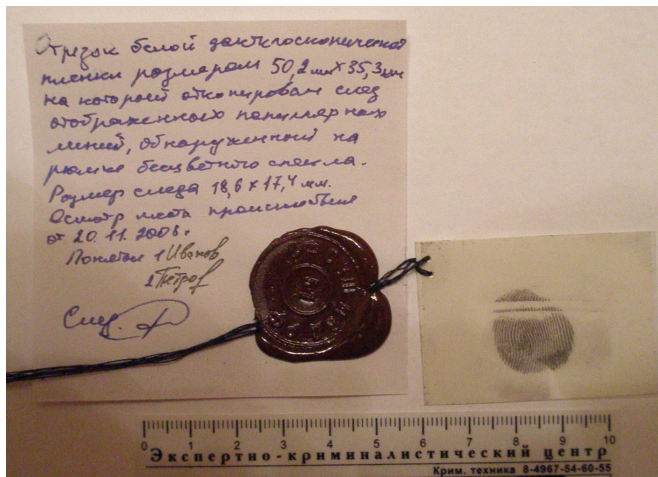 Отрезок белой дактилоскопической
пленки размером 50,2 мм х 35,3 мм
на которой откопирован след
отображенных папиллярных
линий, обнаруженный на
рюмке бесцветного стекла.
Размер следа 18,6 х 17,4 мм.
Осмотр места происшествия
от 20.11.2008г.
Понятые 1 Иванов
2 Петров
След.
0 1 2 3 4 5 6 7 8 9 10
Экспертно-криминалистический центр
Крим. техника 8-4967-54-60-55